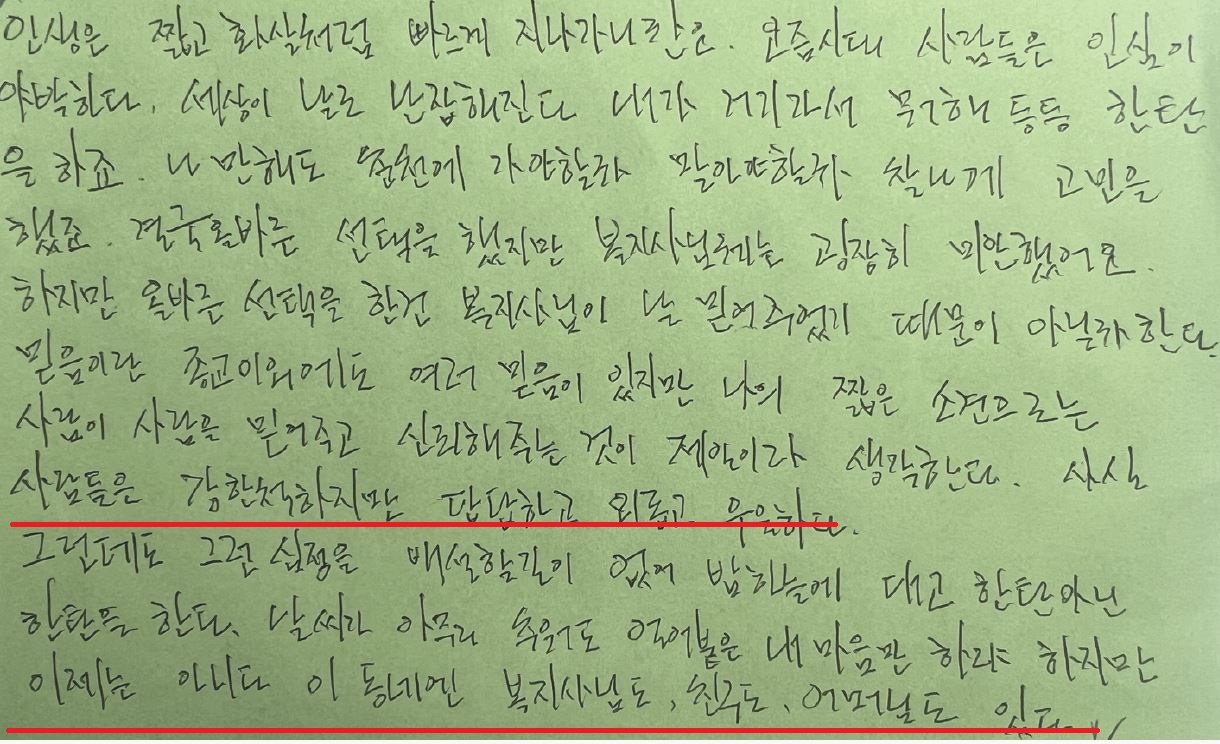 인생은 짧고 화살처럼 빠르게 지나가니깐요. 요즘시대 사람들은 인심이
야박하다. 세상이 날로 난잡해진다 내가 거기가서 뭐해 등등 한탄
을 하죠. 나 만해도 가야할까 말아야할까 찰나게 고민을
했죠. 결국올바른 선택을 했지만 복지사님께는 굉장히 미안했어요.
하지만 올바른 선택을 한건 복지사님이 날 믿어주었기 때문이 아닐까한다.
믿음이란 종교이외에도 여러 믿음이 있지만 나의 짧은 소견으로는
사람이 사람을 믿어주고 신뢰해주는 것이 제일이라 생각한다. 사실
사람들은 강한척하지만 답답하고 외롭고 우울하다.
그런데도 그런 심정을 배설할길이 없어 밤하늘에 대고 한탄아닌
한탄들 한다. 날씨가 아무리 추워도 얼어붙은 내 마음만 하랴 하지만
이제는 아니다 이 동네엔 복지사님도, 친구도, 어머님도 있다